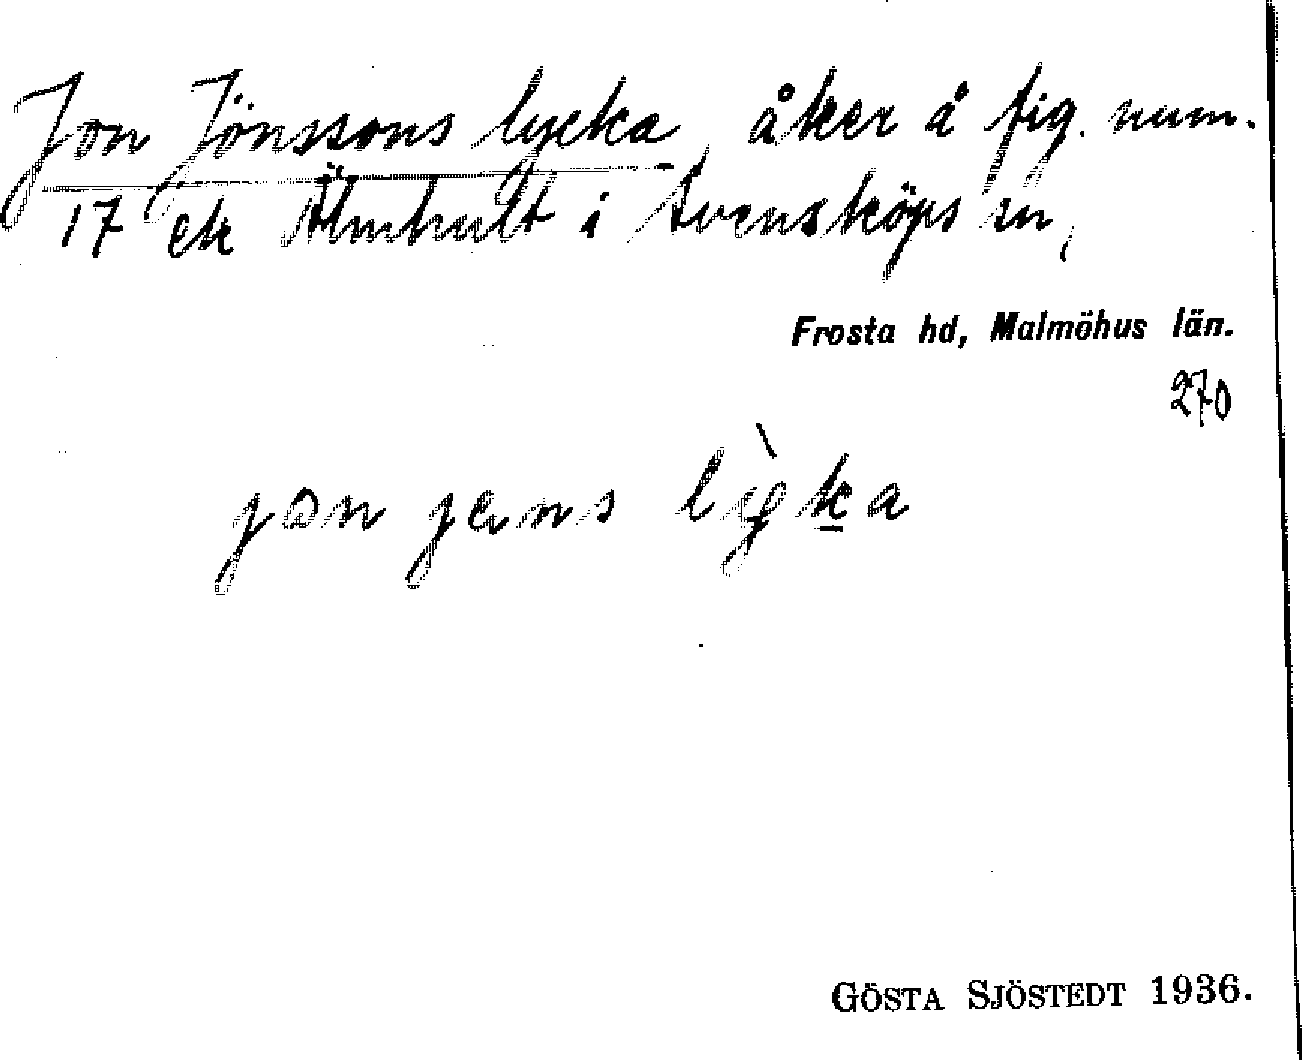 Jon Jönssons lycka, åker å fig. num.
17 ek Älmhult i Svensköps sn,
Frosta hd, Malmöhus län.
270
jon jens lỳka
GÖSTA SJÖSTEDT 1936.